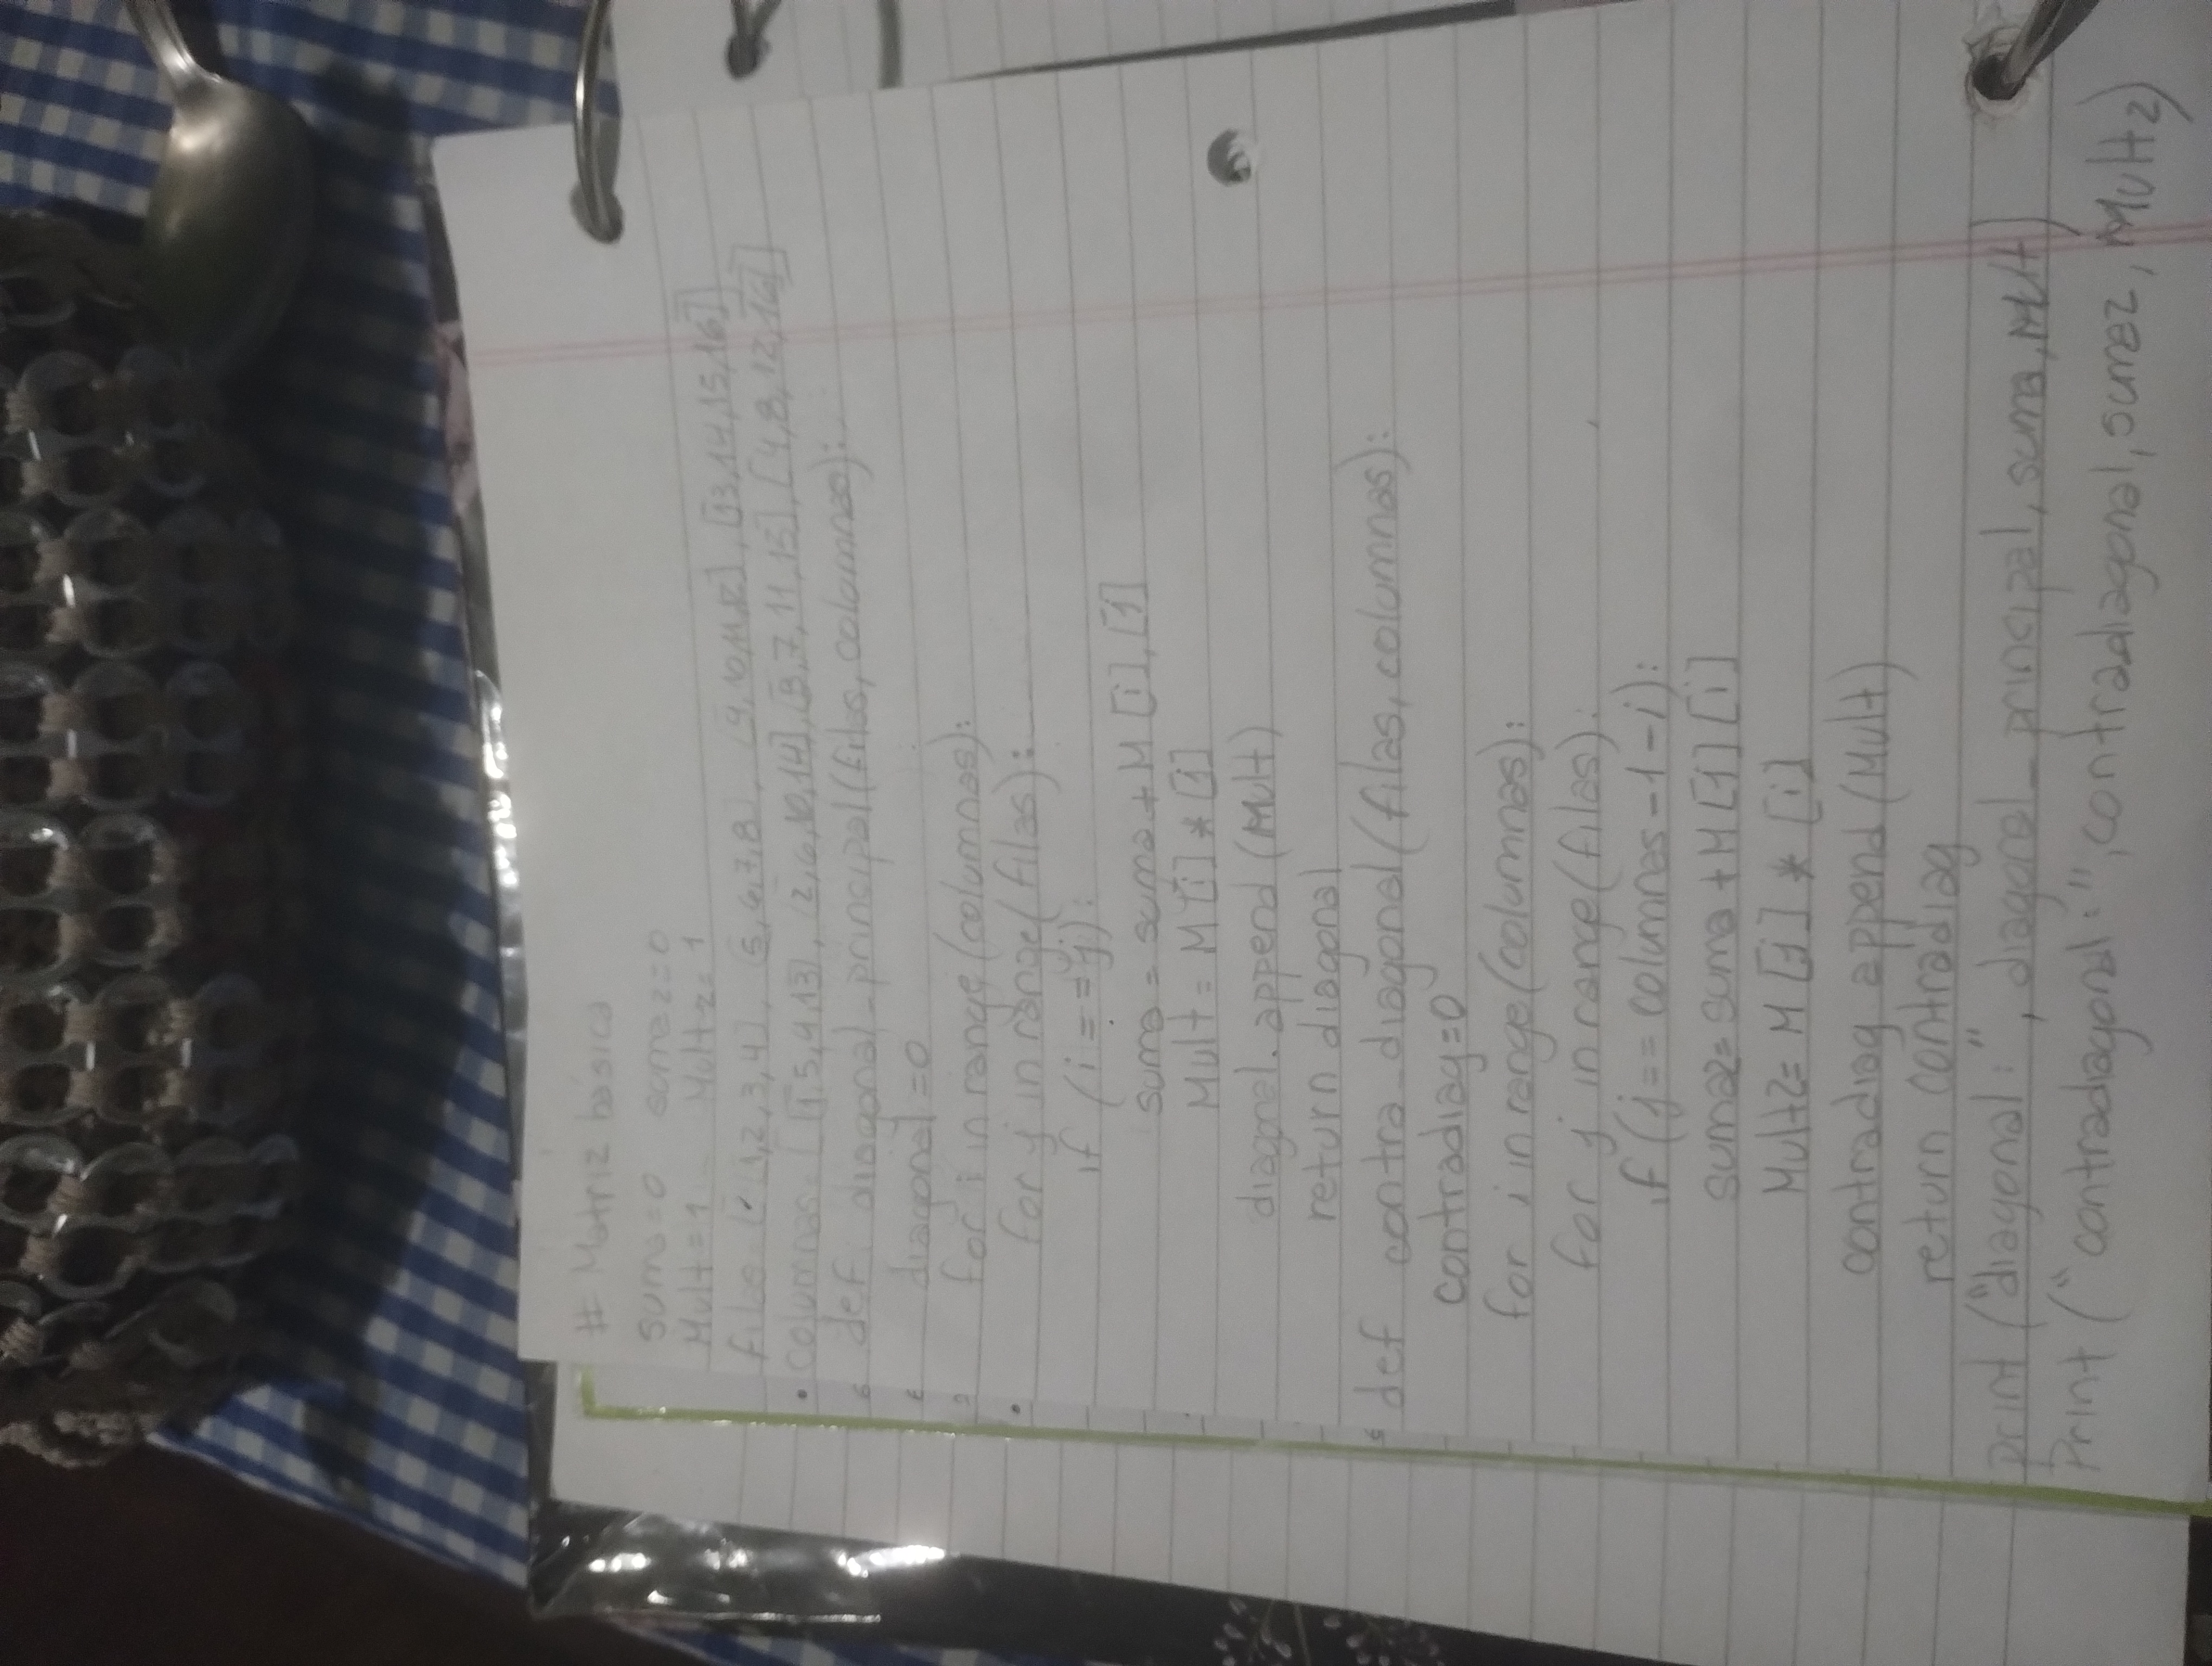 # Matriz básica
suma=0 suma2=0
Mult=1 Mult2=1
filas [ [1,2,3,4], [5,6,7,8], [9,10,11,12], [13,14,15,16]]
columnas= [ [1,5,9,13], [2,6,10,14],[3,7,11,15], [4,8,12,16]]
def diagonal_principal(filas, columnas):
diagonal=0
for i in range(columnas):
for j in range(filas):
if (i==j):
suma = suma + M [i], [j]
Mult = M [i] * [j]
diagonal.append (Mult)
return diagonal
def contra_diagonal(filas, columnas):
contradiag=0
for i in range(columnas):
for j in range(filas):
if (j== columnas-1-i):
suma2= suma + M [j] [i]
Mult2= M [j] * [i]
contradiag append (Mult)
return contradiag
print ("diagonal:", diagonal_principal, suma, Mult)
Print ("contradiagonal:", contradiagonal, suma2, Mult2)